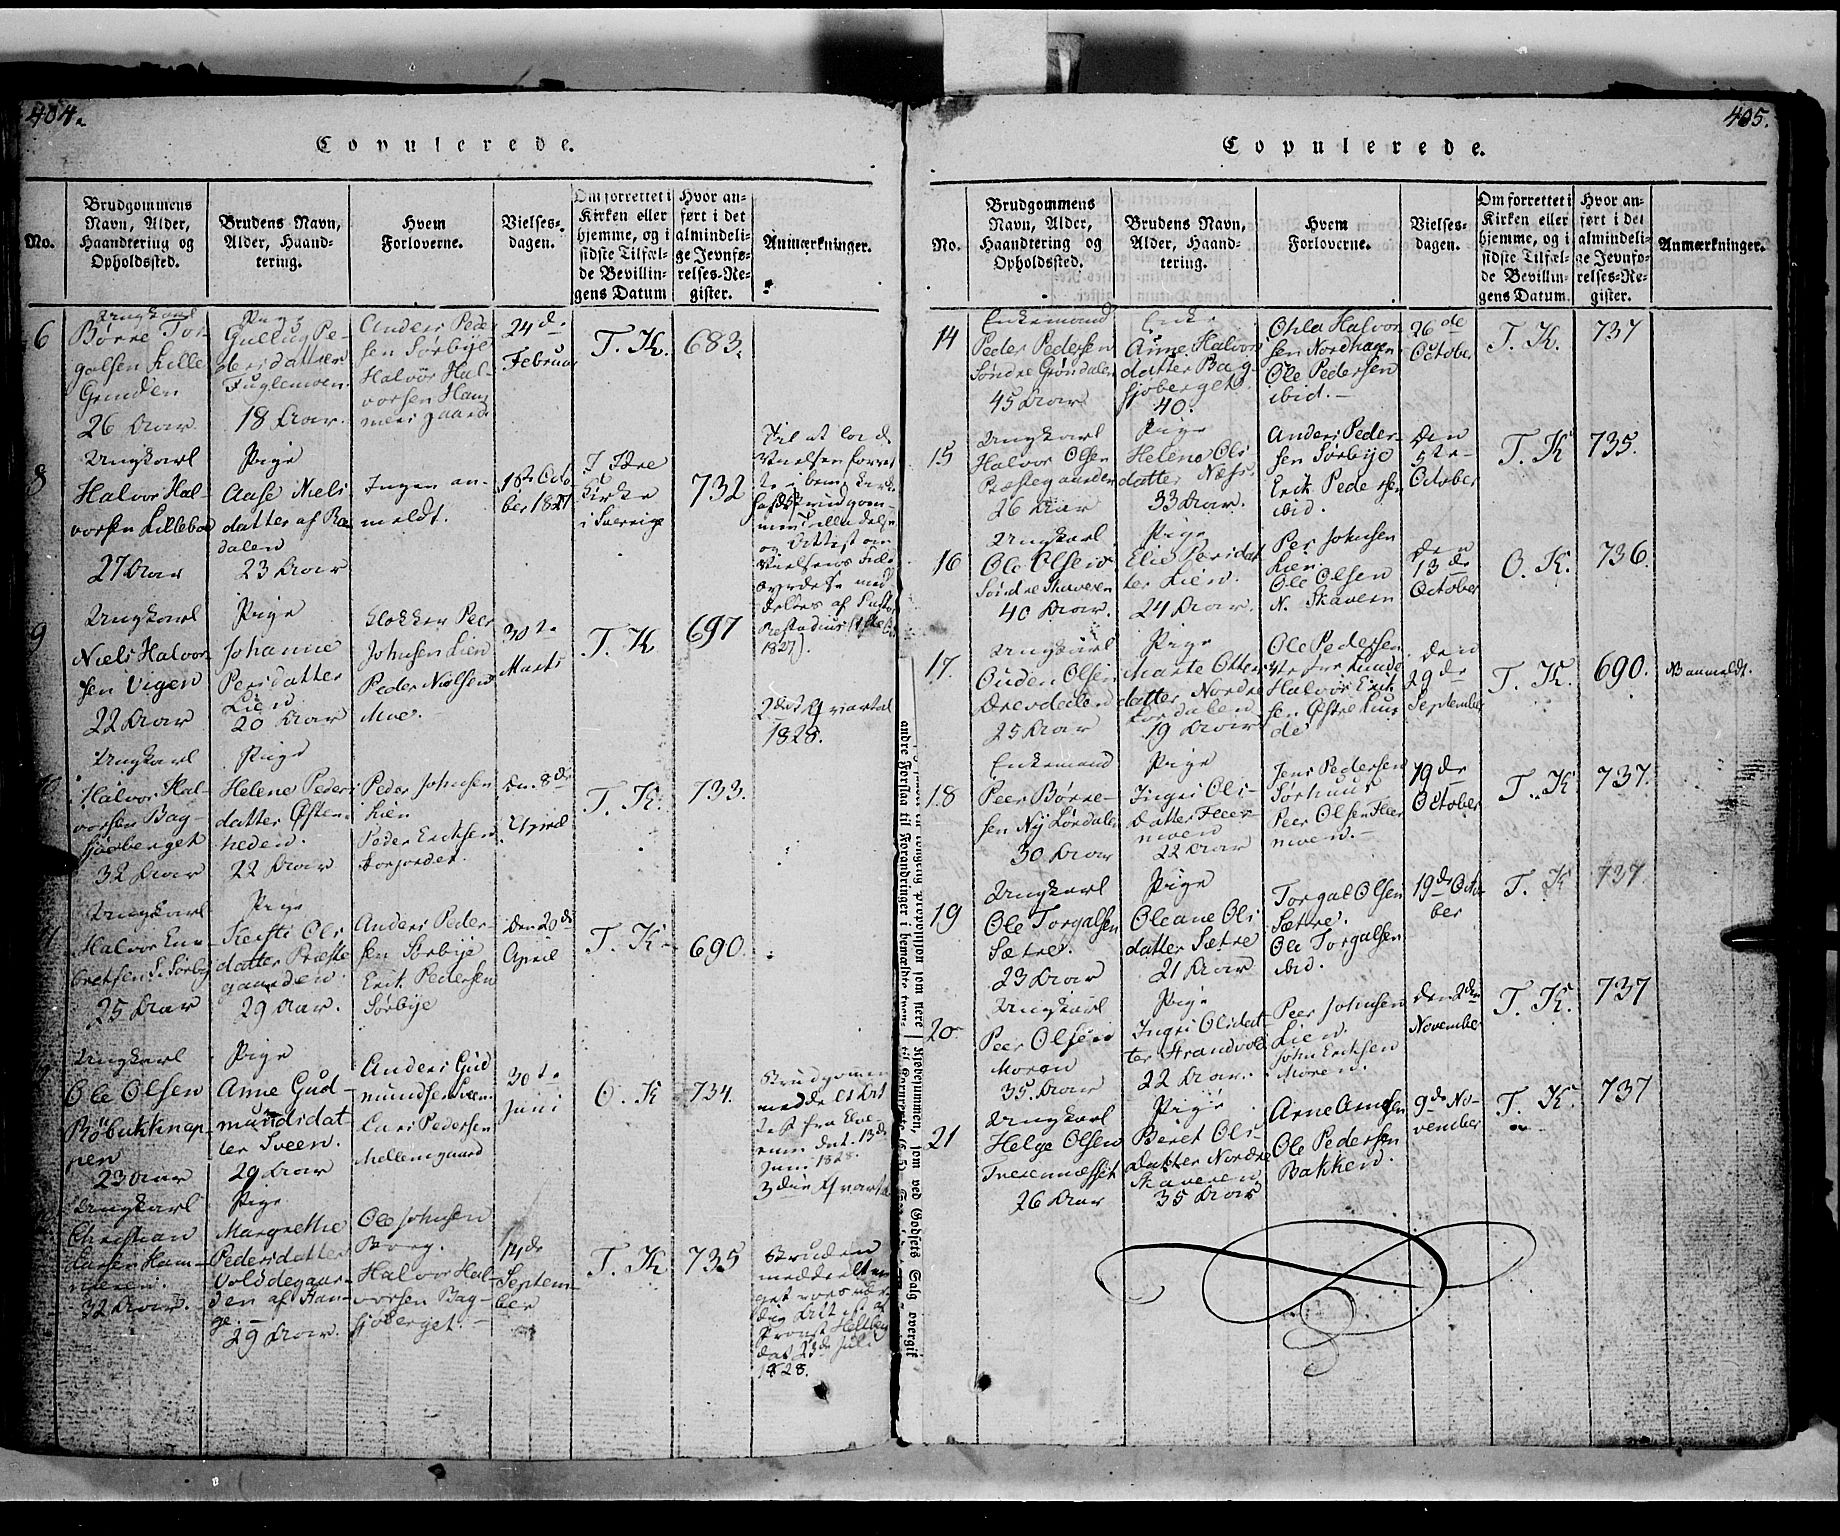 404.
Copulerede.
No.
Brudgommens
Navn, Alder,
Haandtering og
Opholdssted.
Brudens Navn,
Alder, Haand-
tering.
Hvem
Forloverne.
Vielses-
dagen.
Om forrettet i
Kirken eller
hjemme, og i
sidste Tilfæl-
de Bevillin-
gens Datum
Hvor an-
ført i det
almindeli-
ge Jevnfø-
relses-Re-
gister.
Anmærkninger.
6
Ungkarl
Børre Tor-
galsen Lille
Grinden
26 Aar
Pige
Gullug Pe-
dersdatter
Fuglemoen
18 Aar.
Anders Peder
sen Sørbye
Halvor Hal-
vorsen Ham
mersgaard
24de
Februar
T. K.
683.
8
Ungkarl
Halvor Hal-
vorsen Lillebo
27 Aar
Pige
Aase Niels
datter af
dalen
23 Aar
Ingen an-
meldt.
October 1827
I Idre
Kirke
i Sverrige
732
Til at lade
Vielsen forret
te i bem. Kirke
1827).
9
Ungkarl
Niels Halvor-
sen Vigen
22 Aar
Pige
Johanne
Persdatter
Lien
20 Aar
Klokker Peer
Johnsen Lien
Peder Nielsen
Moe.
30te
Marts
T. K.
697
2det Qvartal
1828.
Ungkarl
Halvor Hal-
vorsen Bag-
sjøberget
32 Aar
Pige
Helene Peders
datter Østen-
heden.
22 Aar
Peder Johnsen
Lien
Peder Ericksen
Den 8de
April
T. K.
733.
Ungkarl
Halvor Em-
bretsen S. Sørby
25 Aar
Pige
Kersti Ols
datter Præste
gaarden
29 Aar.
Anders Peder-
sen Sørbye
Erik Pedersen
Sørbye
Den 20de
April
T. K.
690.
Ungkarl
Ole Olsen
Røbukknap-
pen
23 Aar
Pige
Anne Gud-
mundsdat
ter Sveen.
29 Aar
Anders Gud
mundsen Sveen
Lars Pedersen
Mellemgaard
30te
Juni
O. K
734.
Brudgommen
meddelt At
test fra Elve
rum det. 13de
Juni 1828.
3die Qvartal
Ungkarl
Christian
Larsen Ham-
meren.
32 Aar.
Pige
Margrethe
Pedersdatter
Volddegaar-
den af Ran-
ge.
29 Aar.
Ole Johnsen
Borg.
Halvor Hal-
vorsen Bag-
sjøberget.
14de
Septem-
ber
T. K
735
Bruden
meddeelt
dat. 23de Juli
1828.
405.
Copulerede.
No.
Brudgommens
Navn, Alder,
Haandtering og
Opholdssted.
Brudens Navn,
Alder, Haand-
tering.
Hvem
Forloverne.
Vielses-
dagen.
Om forrettet i
Kirken eller
hjemme, og i
sidste Tilfæl-
de Bevillin-
gens Datum.
Hvor an-
ført i det
almindeli-
ge Jevnfø-
relses-Re-
gister.
Anmærkninger.
14
Enkemand
Peder Pedersen
Søndre Grøndalen
45 Aar
Enke
Anne Halvors
datter Bag-
sjøberget.
40.
Ohla Halvor
sen Nordhagen
Ole Pedersen
ibid.
26de
October
T. K.
737
15
Ungkarl
Halvor Olsen
Præstegaarden
26 Aar
Pige
Helene Ols
datter Næss.
33 Aar.
Anders Peder-
sen Sørbye
Erik Pedersen
ibid.
Den
5te
October
T. K
735.
16
Ungkarl
Ole Olsen
Søndre Skaveren
40 Aar.
Pige
Elie Persdat
ter Lien.
24 Aar.
Per Johnsen
Lien
Ole Olsen
N. Skaveren
Den
13de
October
O. K.
736.
17.
Ungkarl
Ouden Olsen
Drevdalen
25 Aar
Pige
Marte Otters
datter Nordre
Lørdalen
19 Aar
Ole Pedersen
Ytre Lunde
Halvor Erik
sen Østre Lun
de
Den
29de
September
T. K.
690.
NB anmeldt.
18
Enkemand
Peer Børre-
sen Ny Lørdalen
30 Aar
Pige
Ingri Ols-
datter Flær-
moen
22 Aar
Jens Pedersen
Sørhuus
Peer Olsen Flær
moen.
19de
October
T. K
737.
19
Ungkarl
Ole Torgalsen
Sætre.
23 Aar
Pige
Oleane Ols
datter Sætre
21 Aar
Torgal Olsen
Sætre.
Ole Torgalsen
ibid.
19de Octo
ber
T. K
737.
20
Ungkarl
Peer Olsen
Moren
35. Aar
Pige
Ingri Olsdat-
ter Strandvold
22 Aar.
Peer Johnsen
Lien.
John Eriksen
Moren.
den 2den
November
T. K.
737
21
Ungkarl
Helge Olsen
Trerennæsset
26 Aar
Pige
Beret Ols-
datter Nordre
Skaveren
35 Aar
Arne Arnesen
Ole Pedersen
Bakken.
9de No-
vember
T. K.
737
andre Forslag til Forandringer i bemældte
Kjøbesummen, som ved Godsets Salg overgik